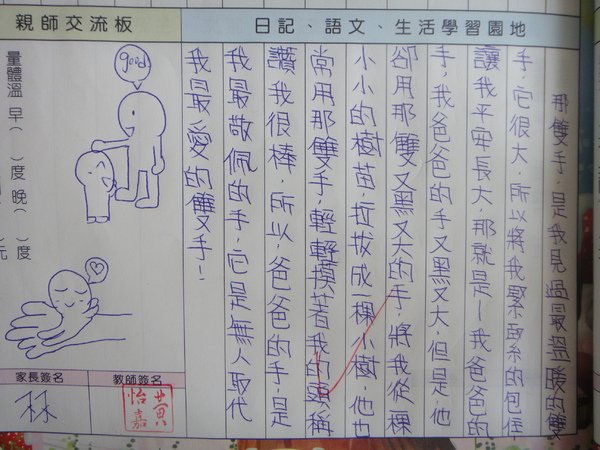 日記、語文、生活學習園地
那雙手,是我見過最溫暖的雙
手,它很大,所以將我緊緊的包住,
讓我平安長大,那就是—我爸爸的
手,我爸爸的手又黑又大,但是,他
卻用那雙又黑又大的手,將我從一棵
小小的樹苗,拉拔成一棵小樹,他也
常用那雙手,輕輕摸著我的頭,稱
讚我很棒,所以,爸爸的手,是
我最敬佩的手,它是無人取代
我最愛的雙手!
親師交流板
good
量體溫 早( )度 晚( )度
元
家長簽名
教師簽名
林
黃怡嘉